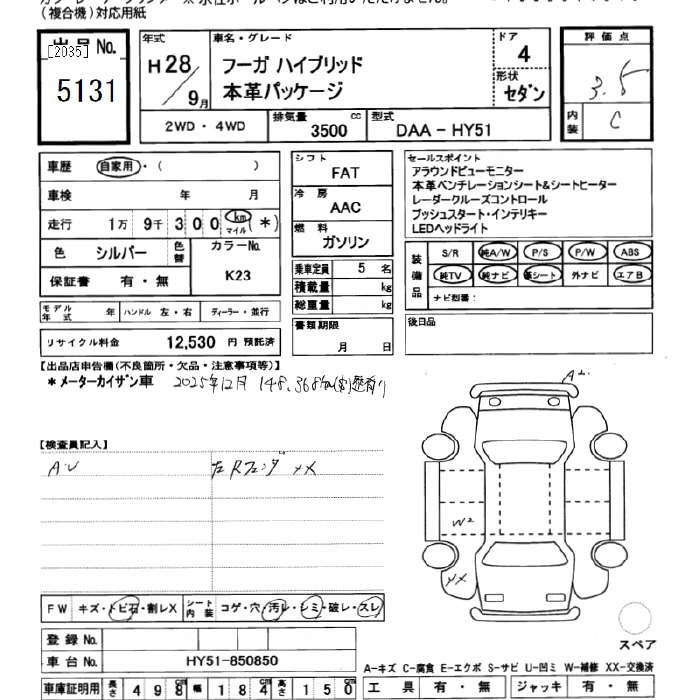 (複合機)対応用紙
出品 No.
[2035]
5131
年式
H28/9月
車名・グレード
フーガ ハイブリッド
本革パッケージ
ドア
4
形状
セダン
評価点
3.5
内装
C
2WD・4WD
排気量
3500 cc
型式
DAA - HY51
車歴 自家用・( )
車検 年 月
走行 1万 9千 300 km マイル *)
色 シルバー 色替
カラーNo.
K23
保証書 有・無
モデル年式 年 ハンドル 左・右 ディーラー・並行
リサイクル料金 12,530 円 預託済
シフト
FAT
冷房
AAC
燃料
ガソリン
乗車定員 5 名
積載量 kg
総重量 kg
書類期限
月 日
セールスポイント
アラウンドビューモニター
本革ベンチレーションシート&シートヒーター
レーダークルーズコントロール
プッシュスタート・インテリキー
LEDヘッドライト
装備品
S/R 純A/W P/S P/W ABS
純TV 純ナビ 革シート 外ナビ エアB
ナビ型番:
後日品
【出品店申告欄(不良箇所・欠品・注意事項等)】
*メーターカイザン車 2025年12月 148,368km
【検査員記入】
A・U 左Rフェンダ XX
A2
W2
XX
FW キズ・トビ石・割レX シート内装 コゲ・穴・汚レ・シミ・破レ・スレ
登録 No.
車台 No. HY51-850850
車庫証明用 長さ 498 幅 184 高さ 150
スペア
A-キズ C-腐食 E-エクボ S-サビ U-凹ミ W-補修 XX-交換済
工具 有・無 ジャッキ 有・無